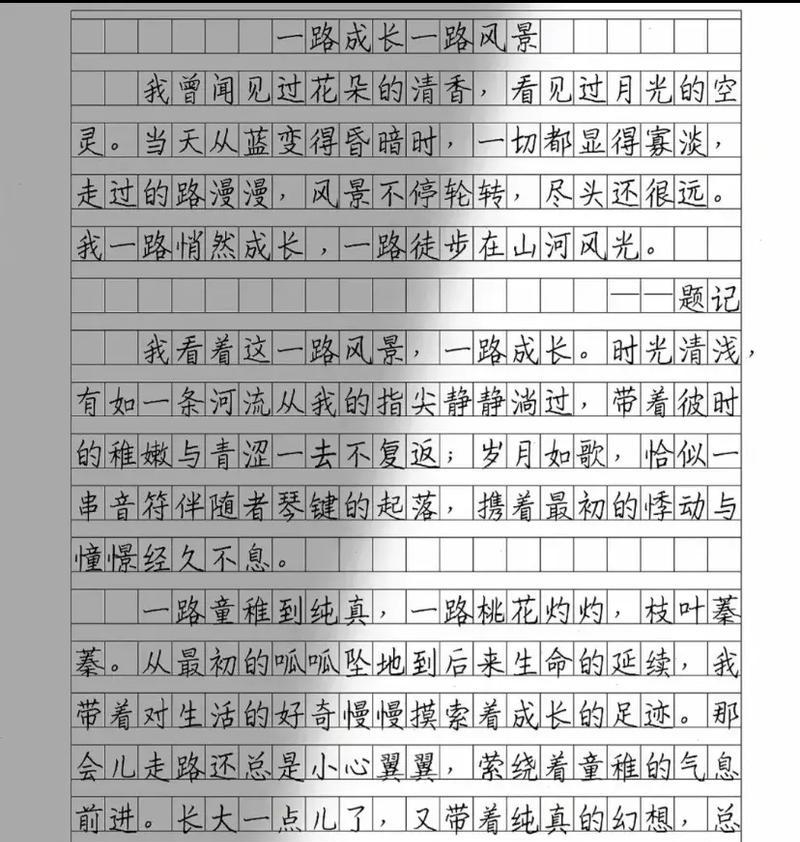 一路成长一路风景
我曾闻见过花朵的清香，看见过月光的空
灵。当天从蓝变得昏暗时，一切都显得寡淡，
走过的路漫漫，风景不停轮转，尽头还很远。
我一路悄然成长，一路徒步在山河风光。
——题记
我看着这一路风景，一路成长。时光清浅，
有如一条河流从我的指尖静静淌过，带着彼时
的稚嫩与青涩一去不复返；岁月如歌，恰似一
串音符伴随者琴键的起落，携着最初的悸动与
憧憬经久不息。
一路童稚到纯真，一路桃花灼灼，枝叶蓁
蓁。从最初的呱呱坠地到后来生命的延续，我
带着对生活的好奇慢慢摸索着成长的足迹。那
会儿走路还总是小心翼翼，萦绕着童稚的气息
前进。长大一点儿了，又带着纯真的幻想，总